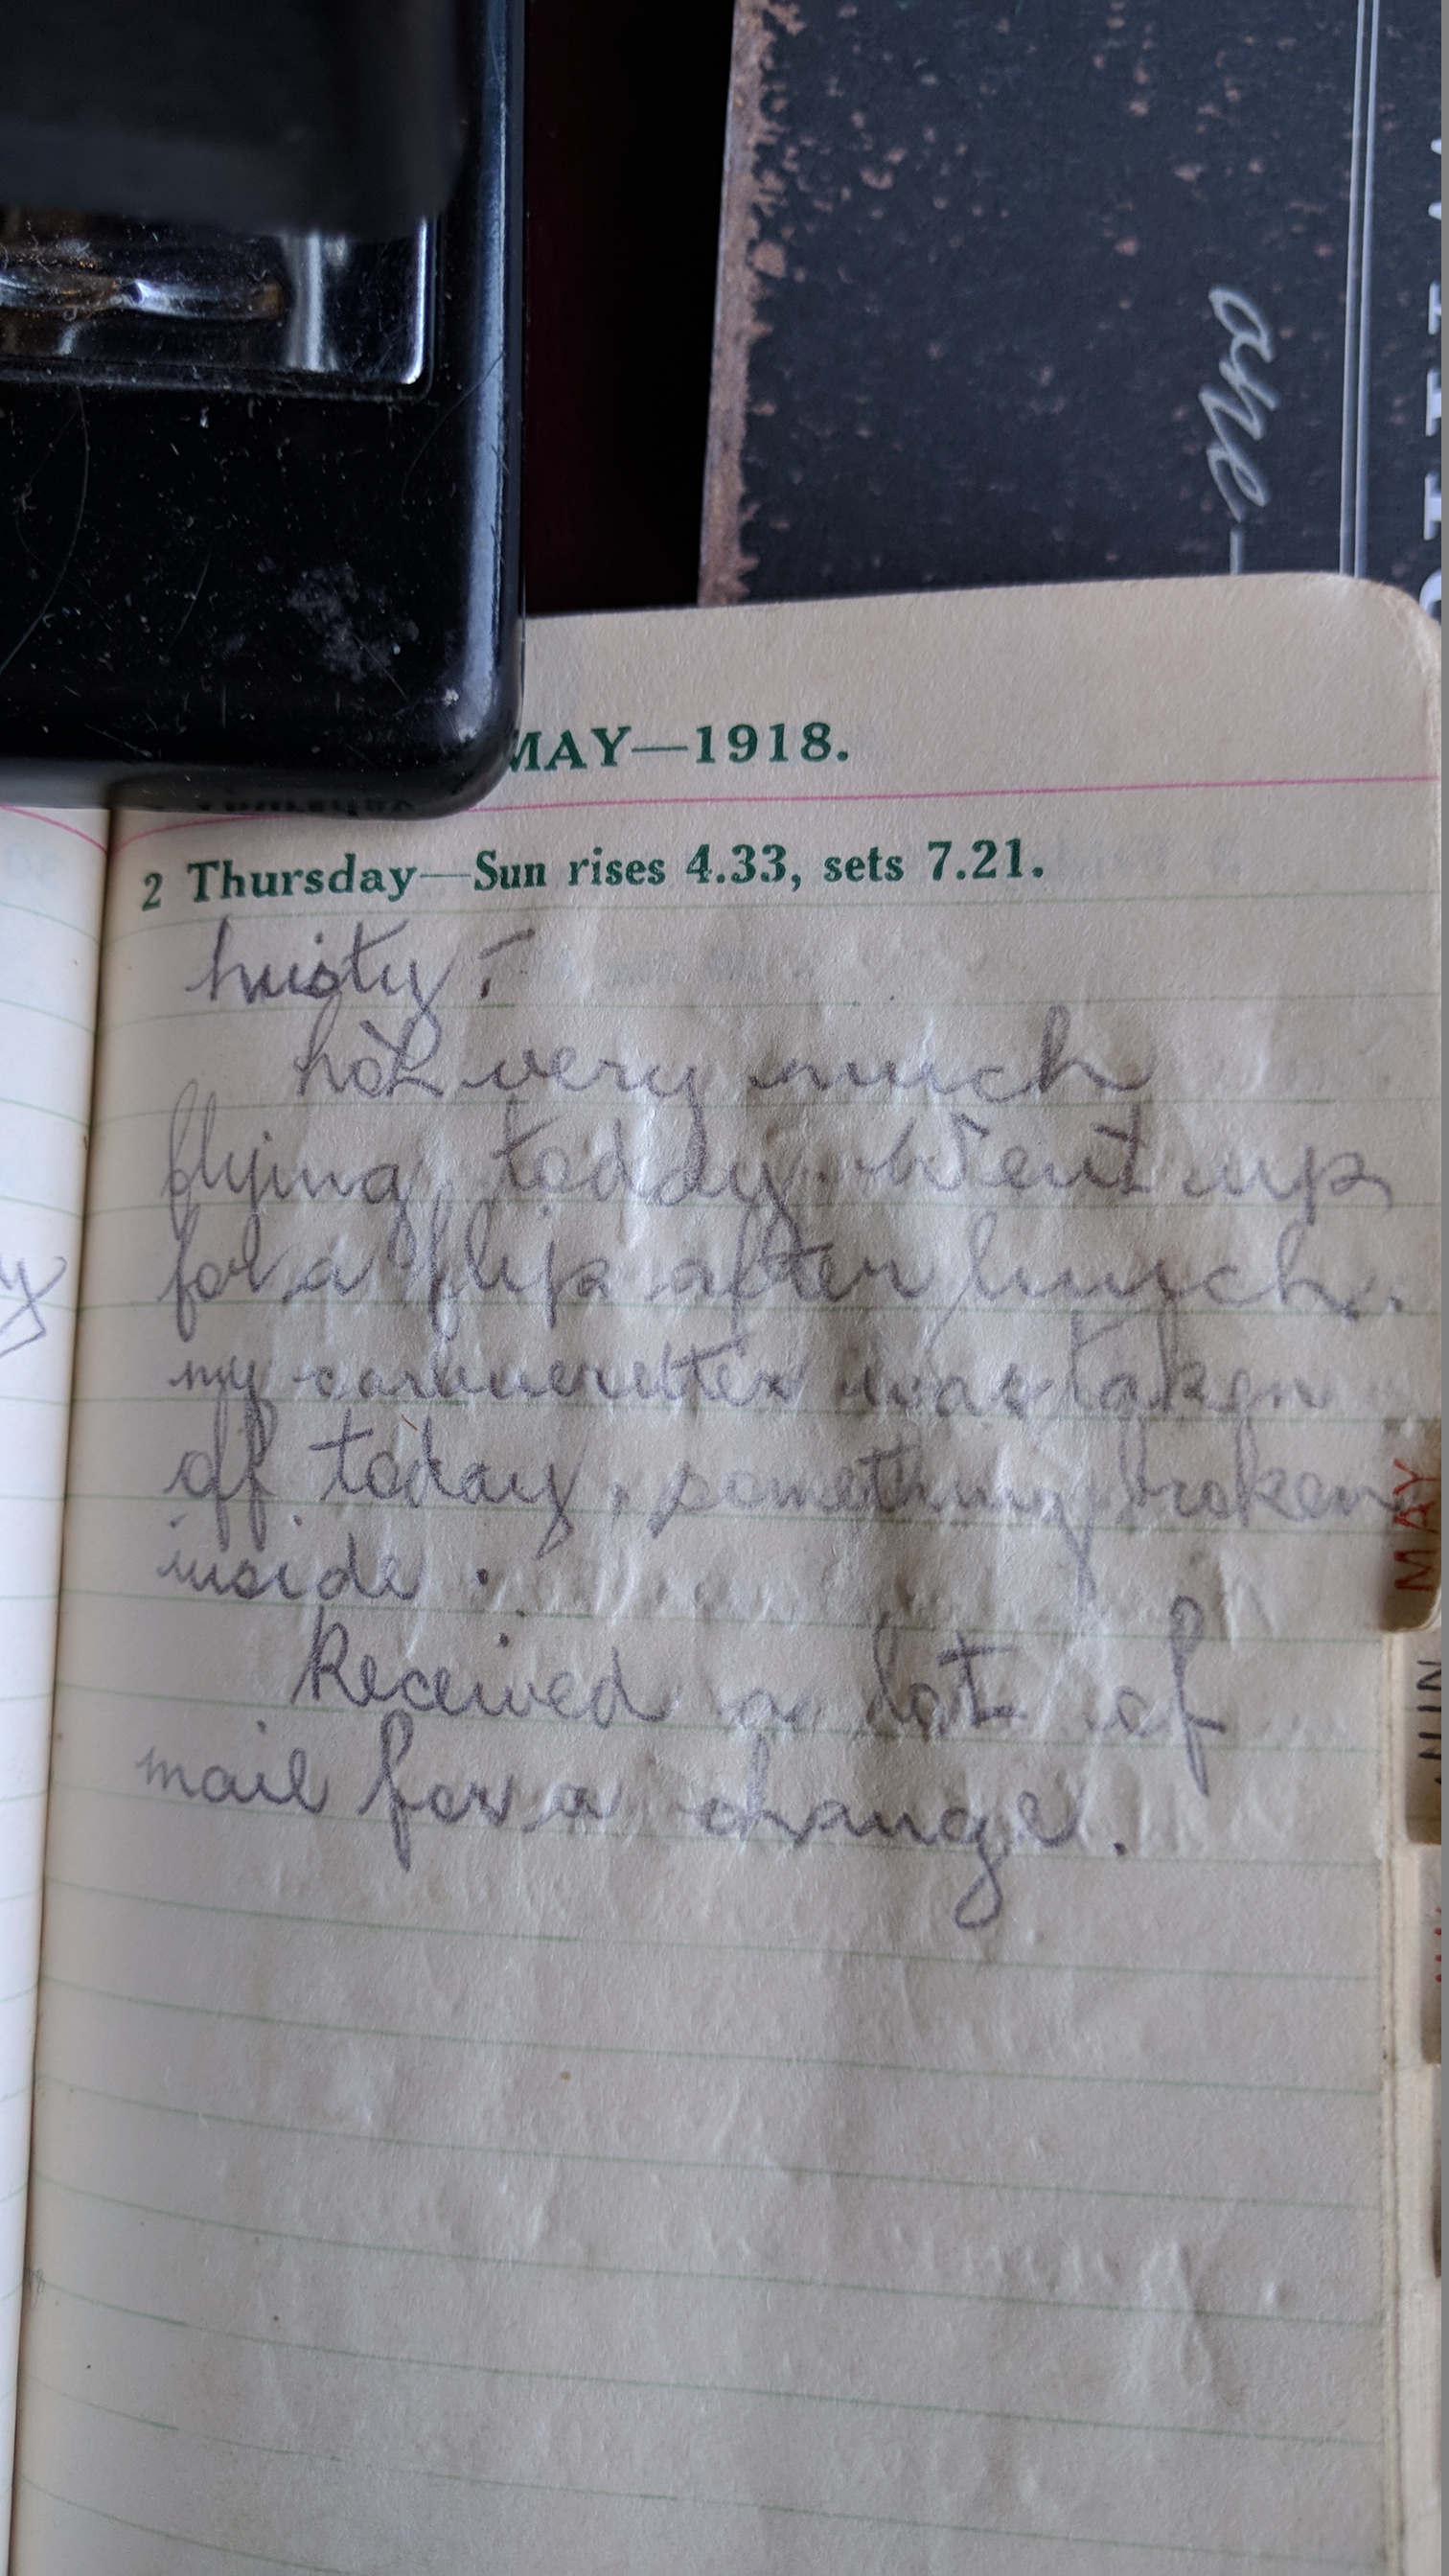 one
MAY—1918.
2 Thursday—Sun rises 4.33, sets 7.21.
Misty :-
Not very much
flying today. Went up
for a flip after lunch.
my carburetter was taken
off today, something broken
inside.
Received a lot of
mail for a change.
MAY
JUN